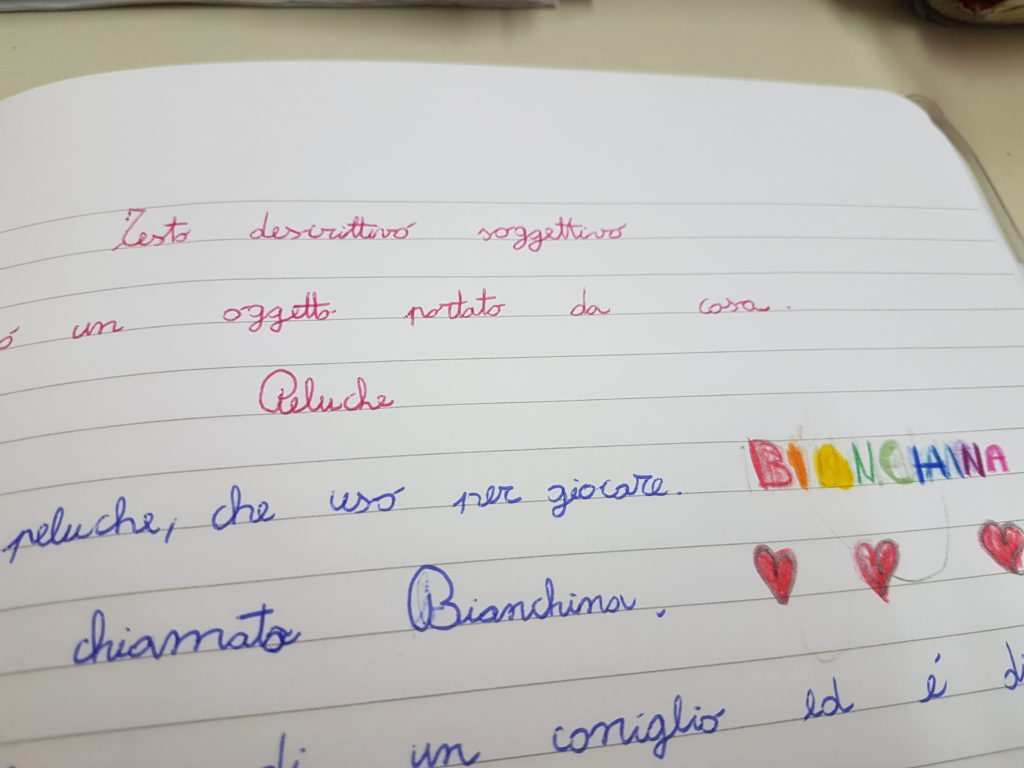 Testo descrittivo soggettivo
ó un oggetto portato da casa.
Peluche
BIANCHINA
peluche, che uso per giocare.
chiamata Bianchina.
di un coniglio ed é di